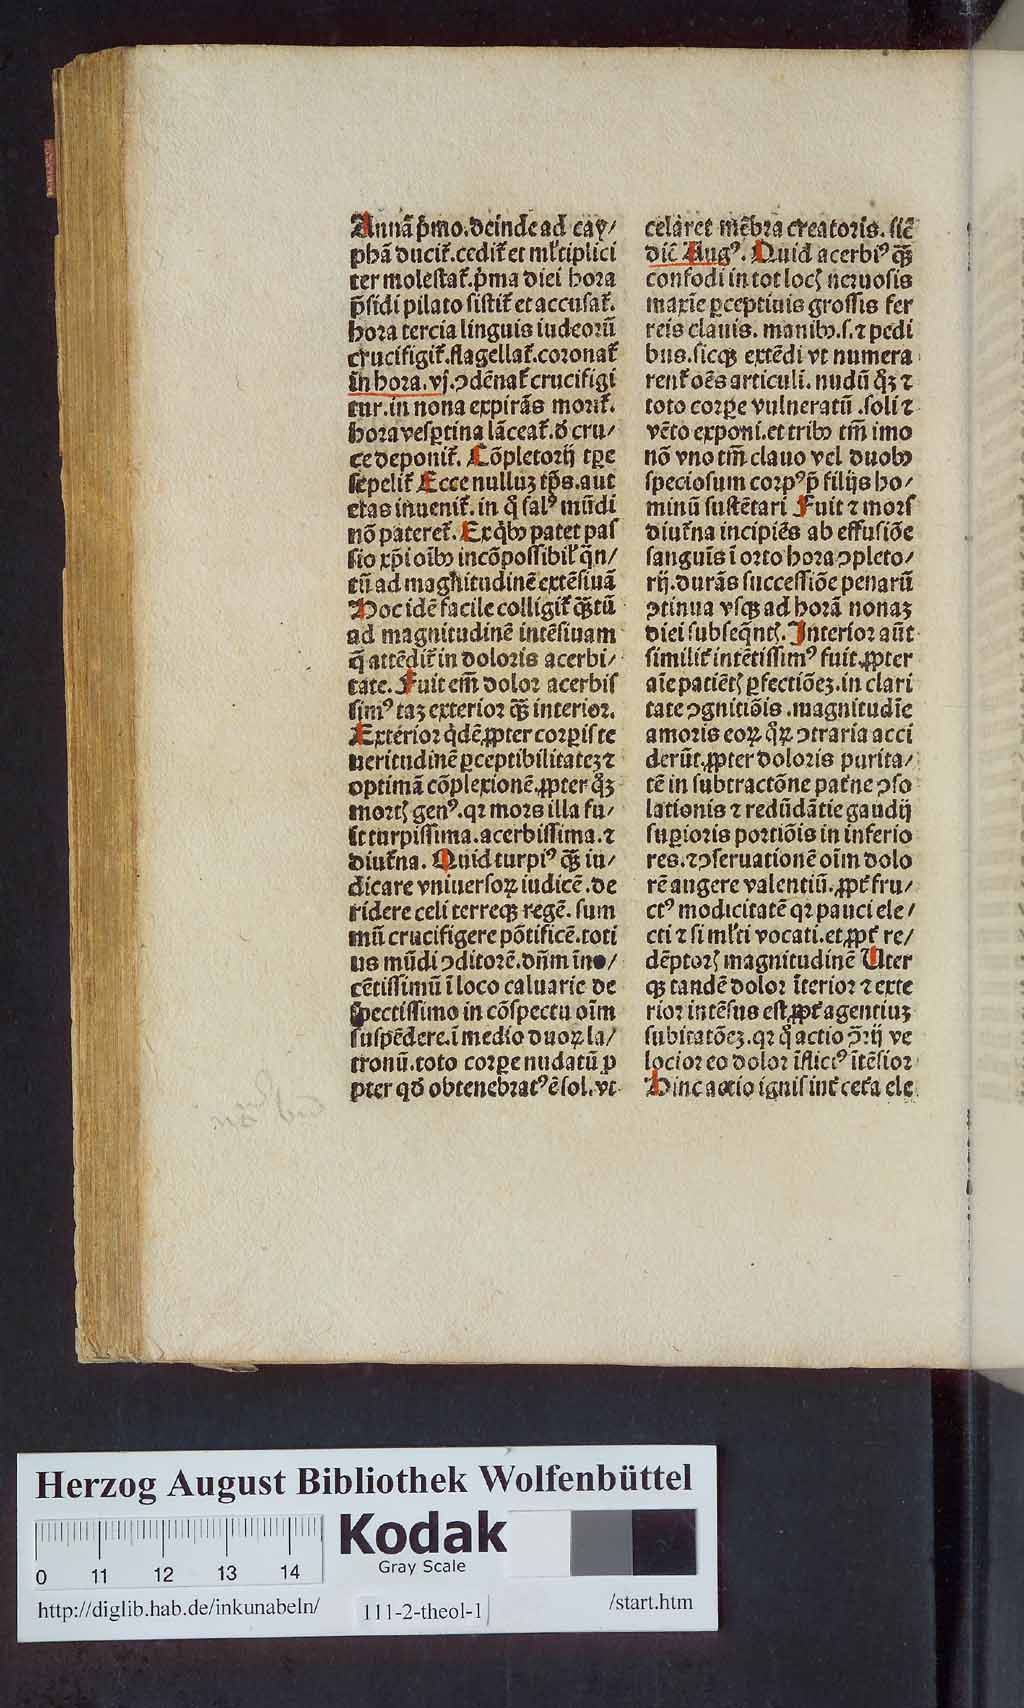 Annā p̄mo. deinde ad cay/
phā ducit᷑. cedit᷑ et ml̓tiplici
ter molestat᷑. p̄ma diei hora
p̄sidi pilato sistit᷑ et accusat᷑.
hora tercia linguis iudeorū
crucifigit᷑. flagellat᷑. coronat᷑
in hora. vj. ↄdēnat᷑ crucifigi
tur. in nona expirās morit᷑.
hora vesꝑtina lāceat᷑. đ cru/
ce deponit᷑. Cōpletorij tꝑe
sepelit᷑ Ecce nulluz tp̄s. aut
etas inuenit᷑. in q̊ salꝰ mūdi
nō pateret᷑. Ex qͥbꝰ patet pas
sio xp̄i oībꝰ incōpossibil̓ q̄n/
tū ad magnitudinē extēsiuā
Hoc idē facile colligit᷑ qȝ̄tū
ad magnitudinē intēsiuam
q̄ attēdit᷑ in doloris acerbi/
tate. Fuit em̄ dolor acerbis
simꝰ taz exterior qȝ̄ interior.
Exterior qͥdē ꝓpter corꝑis te
neritudinē ꝑceptibilitatez ⁊
optimā cōplexionē. ꝓpter qͦȝ
mortꝭ genꝰ. qꝛ mors illa fu/
it turpissima. acerbissima. ⁊
diut᷑na. Quid turpiꝰ qȝ̄ iu/
dicare vniuersoꝝ iudicē. de
ridere celi terreqꝫ regē. sum
mū crucifigere pōtificē. toti
us mūdi ↄditorē. dn̄m īno/
cētissimū ī loco caluarie de
spectissimo in cōspectu oīm
suspēdere. ī medio duoꝝ la/
tronū. toto corꝑe nudatū ꝓ
pter qđ obtenebratꝰ ē sol. vt
celaret mēbra creatoris. sic̄
dic̄ Augꝰ. Quid acerbiꝰ qȝ̄
confodi in tot locꝭ neruosis
maxīe ꝑceptiuis grossis fer
reis clauis. manibꝰ. s. ⁊ pedi
bus. sicqꝫ extēdi vt numera
rent᷑ oēs articuli. nudū qͦȝ ⁊
toto corꝑe vulneratū. soli ⁊
vēto exponi. et tribꝰ tm̄ imo
nō vno tm̄ clauo vel duobꝰ
speciosum corpꝰ p̄ filijs ho/
minū sustētari Fuit ⁊ mors
diut᷑na incipiēs ab effusiōe
sanguīs ī orto hora ↄpleto/
rij. durās successiōe penarū
ↄtinua vsqꝫ ad horā nonaz
diei subseq̄ntꝭ. Interior aūt
similit᷑ intētissimꝰ fuit. ꝓpter
aīe patiētꝭ ꝑfectiōez. in clari
tate ↄgnitiōis. magnitudīe
amoris eoꝝ qͦꝝ ↄtraria acci
derūt. ꝓpter doloris purita/
tē in subtractōne pat᷑ne ↄso
lationis ⁊ redūdātie gaudij
suꝑioris portiōis in inferio
res. ⁊ ↄseruationē oīm dolo
rē augere valentiū. ꝓpt᷑ fru/
ctꝰ modicitatē qꝛ pauci ele/
cti ⁊ si ml̓ti vocati. et ꝓpt᷑ re/
dēptorꝭ magnitudinē Uter
qꝫ tandē dolor īterior ⁊ exte
rior intēsus est. ꝓpt᷑ agentiuz
subitatōez. qꝛ q̊ actio ↄ̄rij ve
locior eo dolor īflictꝰ ītēsior
Hinc actio ignis int᷑ cet᷑a ele
Herzog August Bibliothek Wolfenbüttel
0 11 12 13 14
Kodak
Gray Scale
http://diglib.hab.de/inkunabeln/ 111-2-theol-1 /start.htm